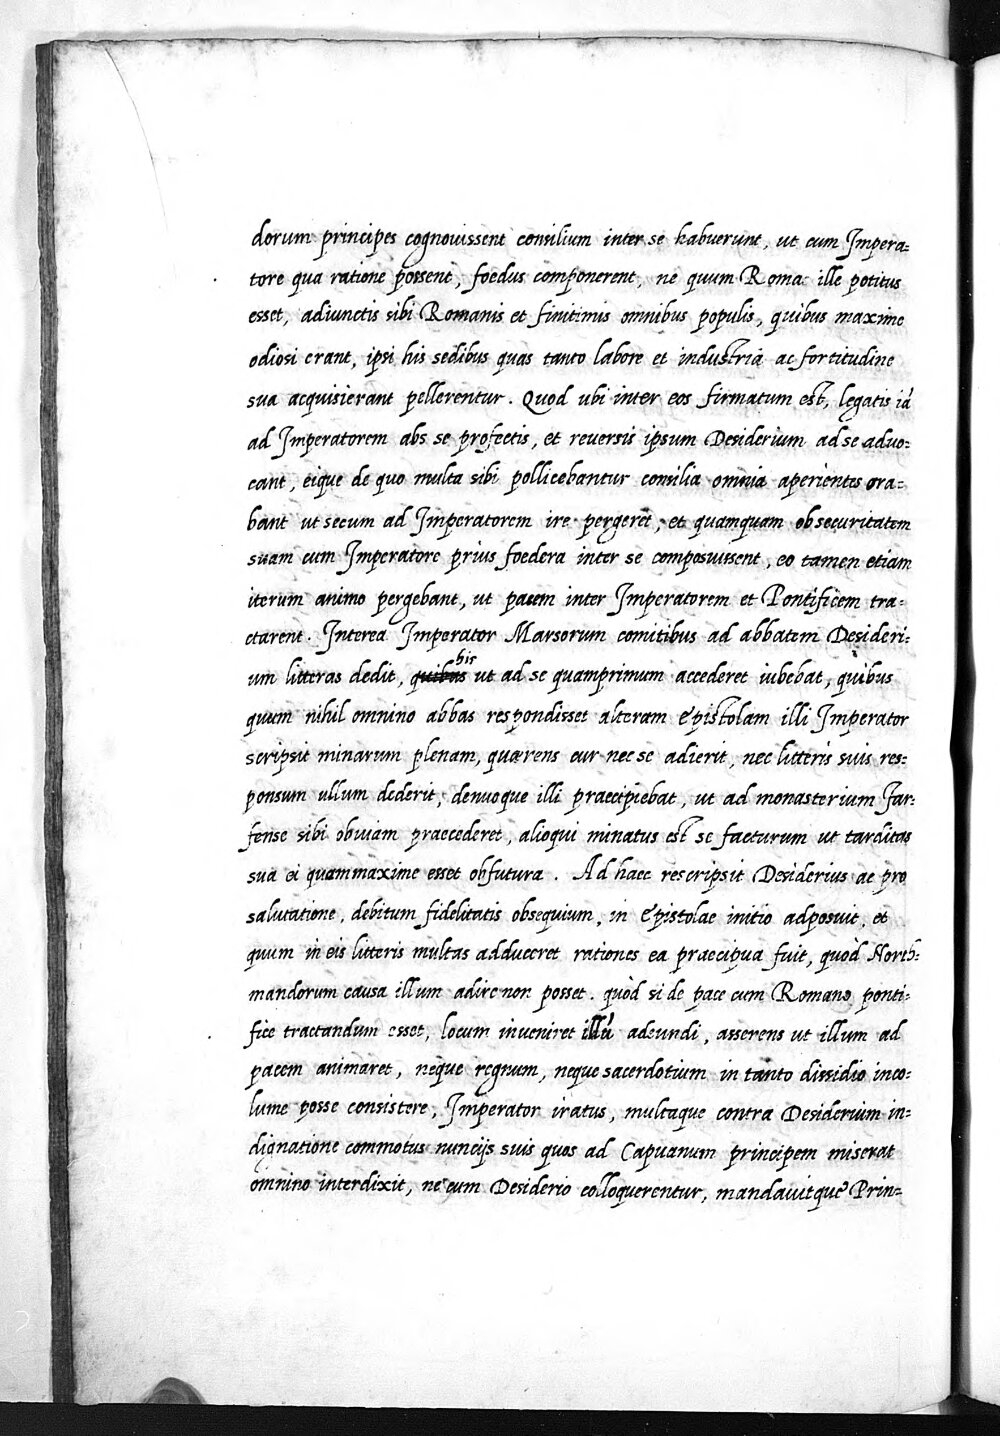 dorum principes cognouissent consilium inter se habuerunt, ut cum Impera=
tore qua ratione possent, foedus componerent, ne quum Roma ille potitus
esset, adiunctis sibi Romanis et finitimis omnibus populis, quibus maxime
odiosi erant, ipsi his sedibus quas tanto labore et industria ac fortitudine
sua acquisierant pellerentur. Quod ubi inter eos firmatum est, legatis iā
ad Imperatorem abs se profectis, et reuersis ipsum Desiderium ad se aduo=
cant, eique de quo multa sibi pollicebantur consilia omnia aperientes ora=
bant ut secum ad Imperatorem ire pergeret, et quamquam ob securitatem
suam cum Imperatore prius foedera inter se composuissent, eo tamen etiam
iterum animo pergebant, ut pacem inter Imperatorem et Pontificem tra=
ctarent. Interea Imperator Marsorum comitibus ad abbatem Desideri=
um litteras dedit, quibus his ut ad se quamprimum accederet iubebat, quibus
quum nihil omnino abbas respondisset alteram epistolam illi Imperator
scripsit minarum plenam, quaerens cur nec se adierit, nec litteris suis res=
ponsum ullum dederit, denuoque illi praecipiebat, ut ad monasterium Far=
fense sibi obuiam praecederet, alioqui minatus est se facturum ut tarditas
sua ei quammaxime esset obfutura. Ad haec rescripsit Desiderius ac pro
salutatione, debitum fidelitatis obsequium, in epistolae initio adposuit, et
quum in eis litteris multas adduceret rationes ea praecipua fuit, quòd North=
mandorum causa illum adire non posset. quòd si de pace cum Romano ponti=
fice tractandum esset, locum inueniret illū adeundi, asserens ut illum ad
pacem animaret, neque regnum, neque sacerdotium in tanto dissidio inco=
lume posse consistere, Imperator iratus, multaque contra Desiderium in=
dignatione commotus nuncijs suis quos ad Capuanum principem miserat
omnino interdixit, ne cum Desiderio colloquerentur, mandauitque Prin=